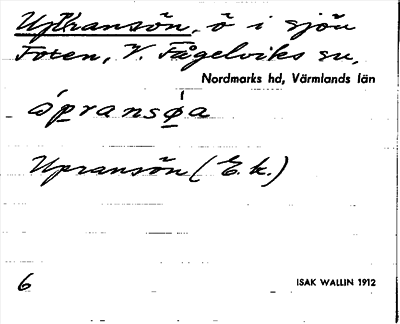 Upransön, ö i sjön
Foxen, V. Fågelviks sn,
Nordmarks hd, Värmlands län
ópransø̀a
Upransön (E.k.)
6
ISAK WALLIN 1912